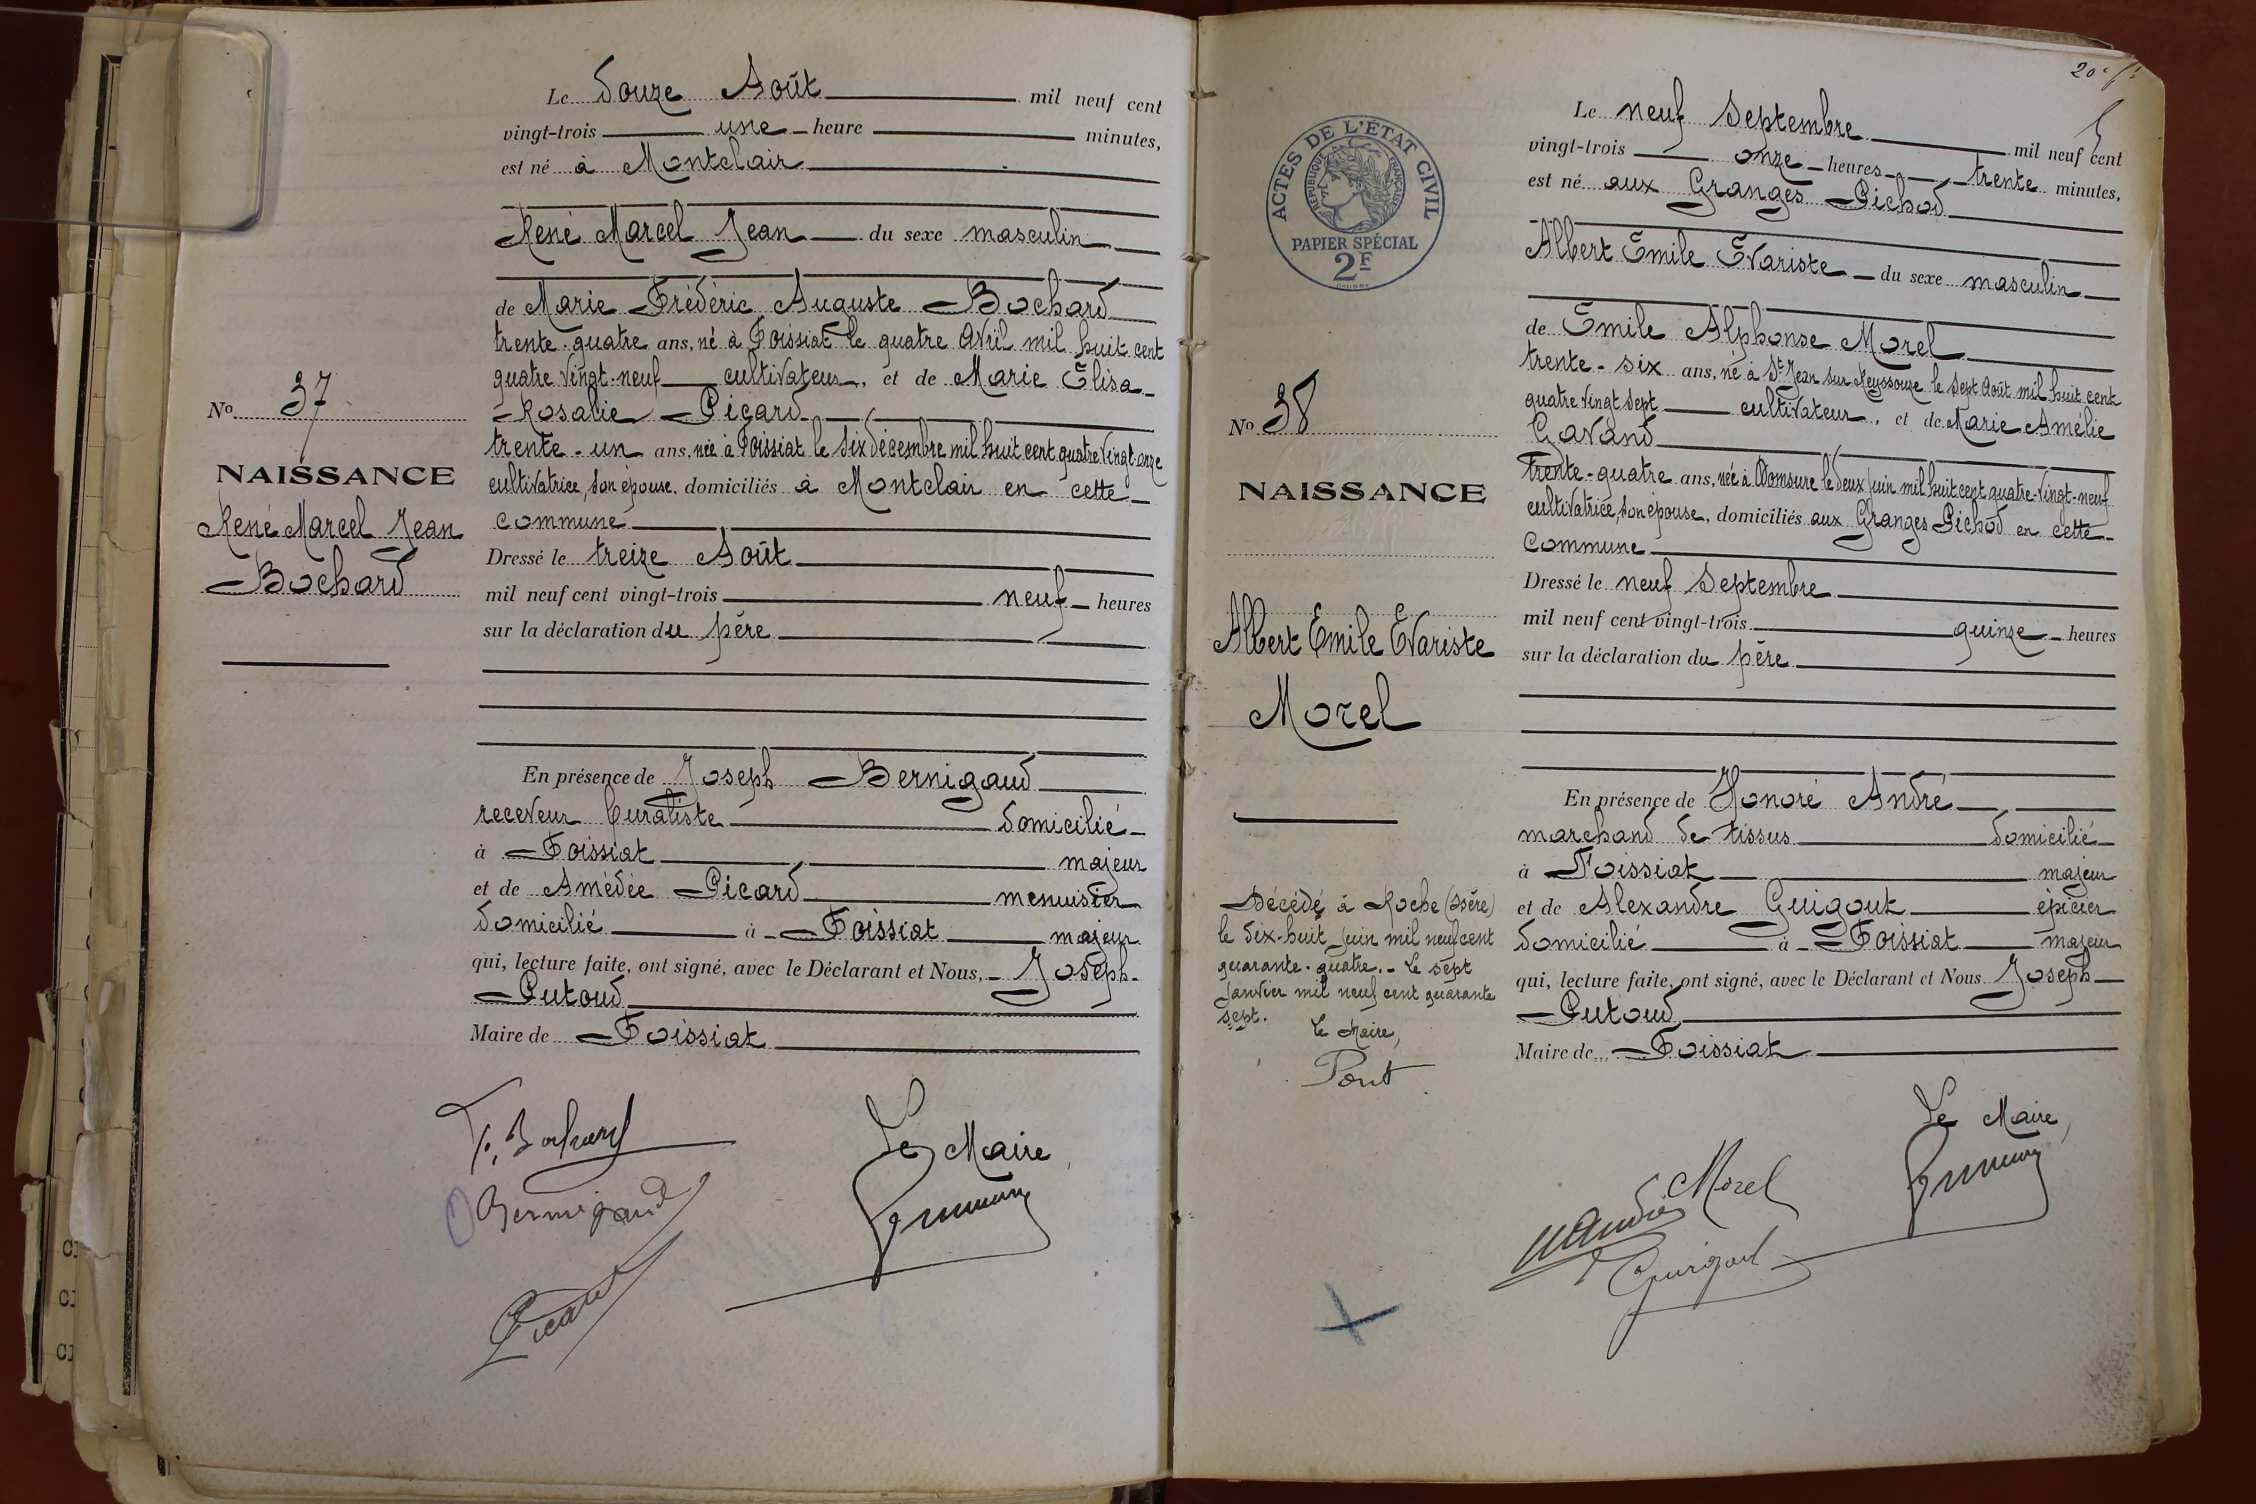 Le douze Août mil neuf cent
vingt-trois une heure minutes,
est né à Montclair
René Marcel Jean du sexe masculin
de Marie Frédéric Auguste Bochard
trente-quatre ans, né à Foissiat le quatre Avril mil huit cent
quatre vingt-neuf cultivateur, et de Marie Elisa
Rosalie Picard
trente-un ans, née à Foissiat le six décembre mil huit cent quatre vingt-onze
cultivatrice, son épouse, domiciliés à Montclair en cette
commune
Dressé le treize Août
mil neuf cent vingt-trois neuf heures
sur la déclaration du père
En présence de Joseph Bernigaud
receveur buraliste domicilié
à Foissiat majeur
et de Amédée Picard menuisier
domicilié à Foissiat majeur
qui, lecture faite, ont signé, avec le Déclarant et Nous, Joseph
Putoud
Maire de Foissiat
F. Bochard
Le Maire,
Bernigaud
Picard
No 37
NAISSANCE
René Marcel Jean
Bochard
20e ft
ACTES DE L'ÉTAT CIVIL
RÉPUBLIQUE FRANÇAISE
PAPIER SPÉCIAL
2F
No 38
NAISSANCE
Albert Emile Evariste
Morel
Décédé à Roche (Isère)
le dix-huit Juin mil neuf cent
quarante-quatre. - Le sept
Janvier mil neuf cent quarante
sept.
Le Maire,
Pont
Le neuf Septembre mil neuf cent
vingt-trois onze heures trente minutes,
est né aux Granges Pichod
Albert Emile Evariste du sexe masculin
de Emile Alphonse Morel
trente-six ans, né à St Jean sur Reyssouze le sept Août mil huit cent
quatre vingt sept cultivateur, et de Marie Amélie
Gavand
trente-quatre ans, née à Domsure le deux Juin mil huit cent quatre-vingt-neuf
cultivatrice, son épouse, domiciliés aux Granges Pichod en cette
commune
Dressé le neuf Septembre
mil neuf cent vingt-trois quinze heures
sur la déclaration du père
En présence de Honoré André
marchand de tissus domicilié
à Foissiat majeur
et de Alexandre Guigout épicier
domicilié à Foissiat majeur
qui, lecture faite, ont signé, avec le Déclarant et Nous Joseph
Putoud
Maire de Foissiat
Le Maire,
Morel
H André
Guigout